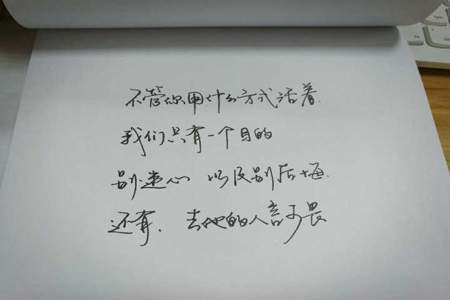 不管你用什么方式活着
我们只有一个目的
别违心 以及别后悔.
还有. 去他的人言可畏